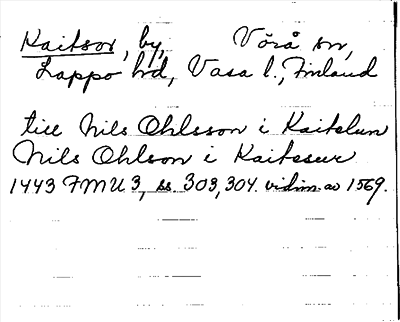 Kaitsor, by, Vörå sn,
Lappo hd, Vasa l., Finland
till Nils Ohlsson i Kaitslun
Nils Ohlson i Kaitssur
1443 FMU 3, ss. 303, 304. vidim. av 1569.